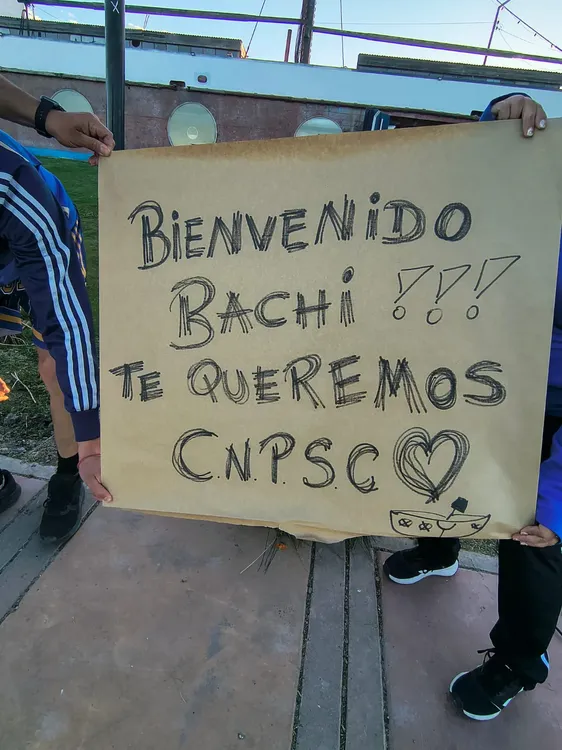 BiENVENiDO
BACHi !!!
TE QUEREMOS
C.N.P.S.C